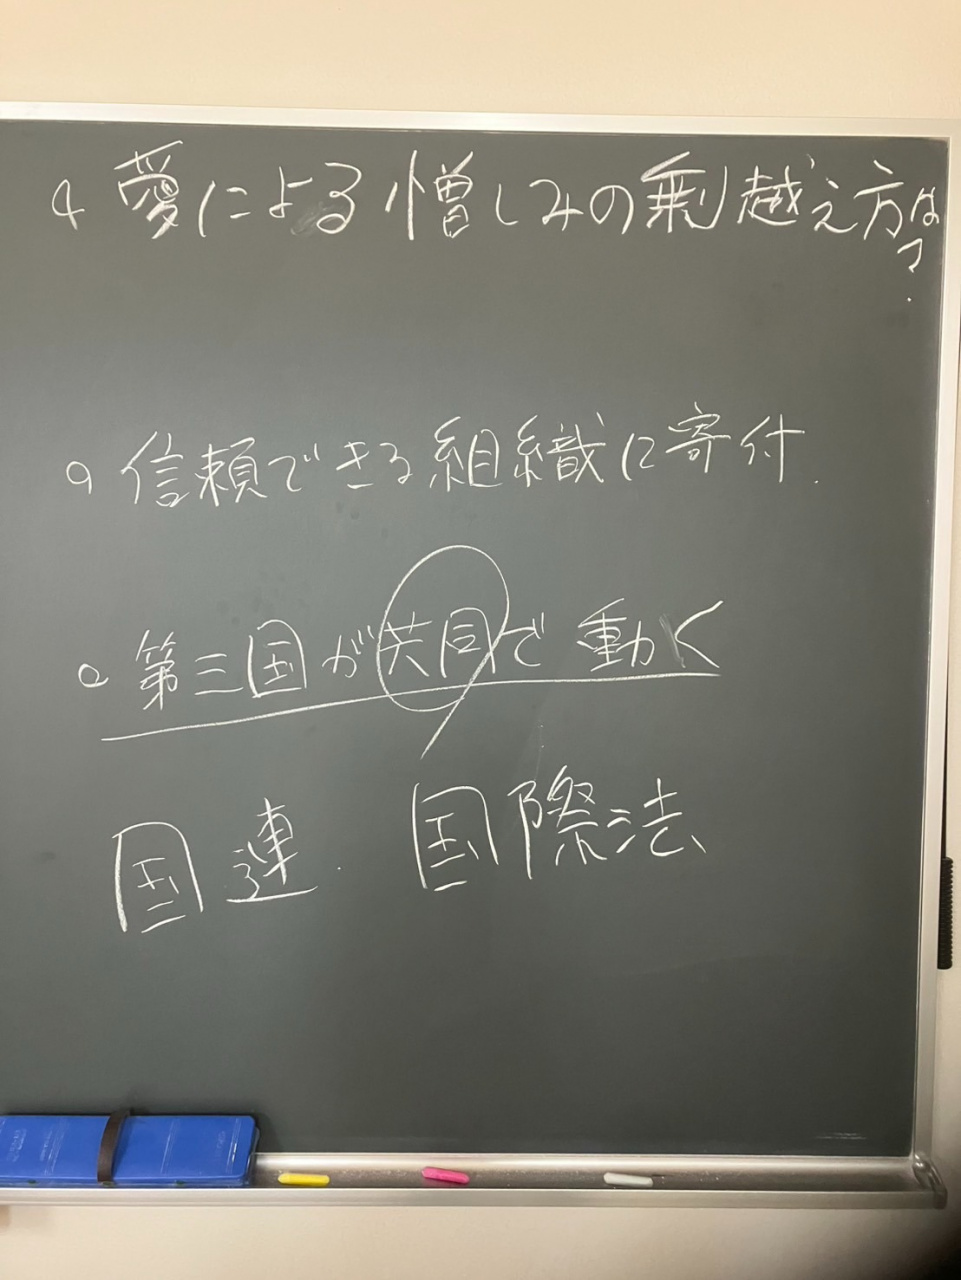 4 愛による憎しみの乗り越え方は?
○ 信頼できる組織に寄付.
○ 第三国が共同で動く
国連. 国際法